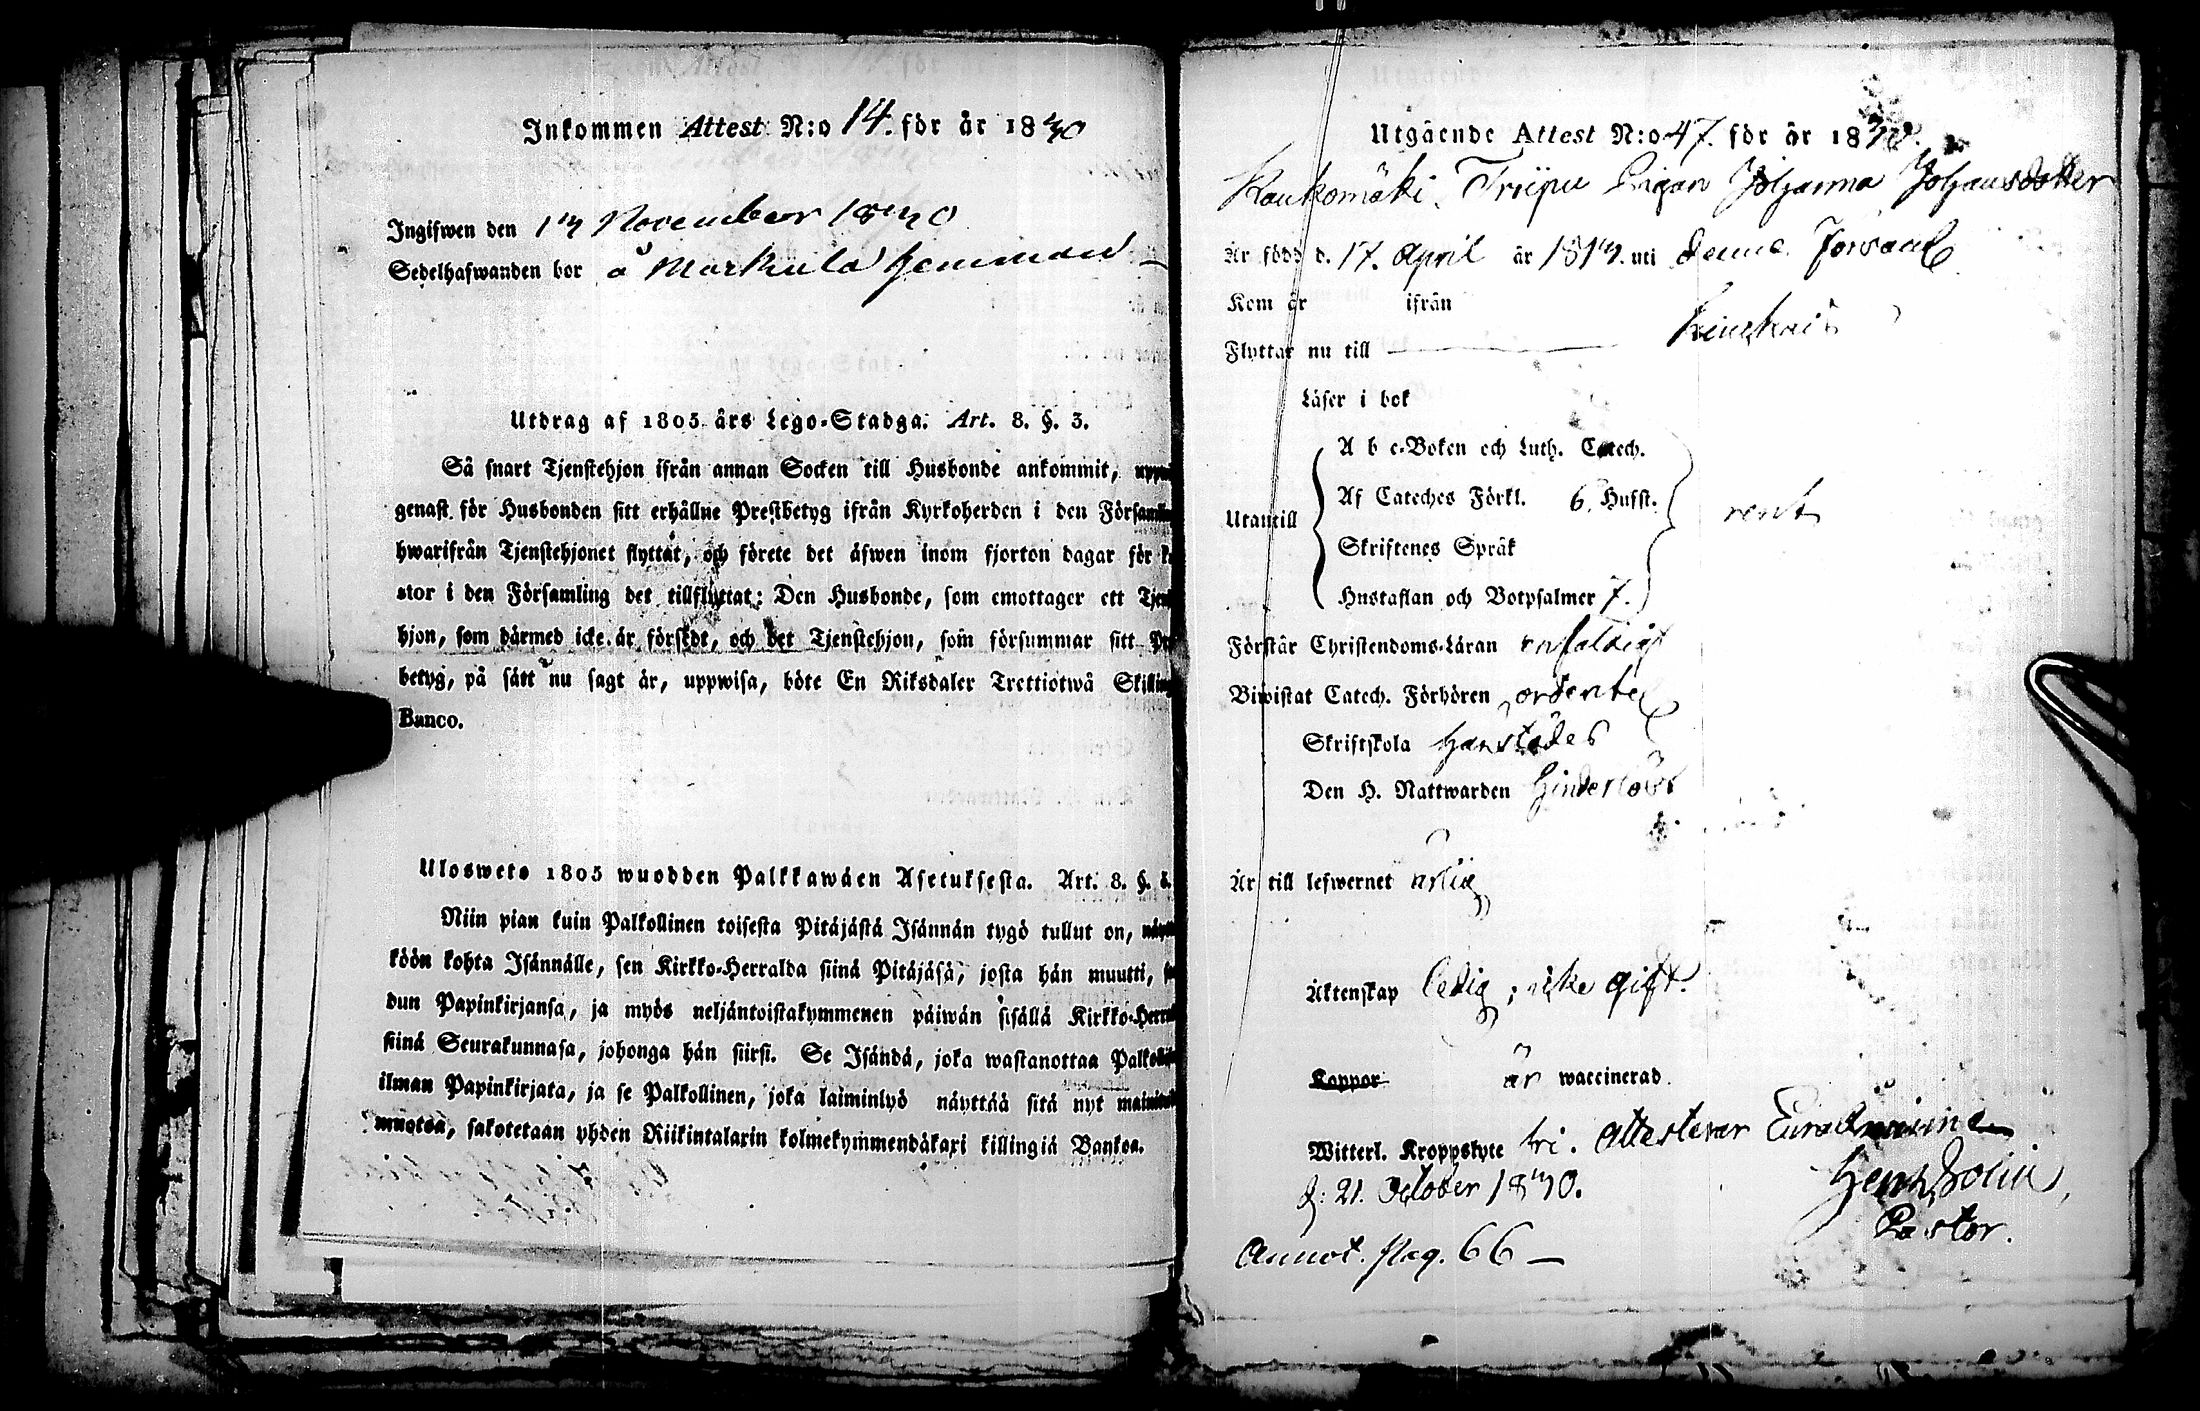 Inkommen Attest N:o 14. för år 1840
Ingifwen den 14 November 1840
Sedelhafwanden bor å Markula hemman
Utdrag af 1805 års Lego-Stadga. Art. 8. §. 3.
Så snart Tjenstehjon ifrån annan Socken till Husbonde ankommit,
genast för Husbonden sitt erhållne Prestbetyg ifrån Kyrkoherden i den
hwarifrån Tjenstehjonet flyttat, och förete det äfwen inom fjorton dagar för
stor i den Församling det tillflyttat: Den Husbonde, som emottager ett
hjon, som därmed icke är försedt, och det Tjenstehjon, som försummar sitt
betyg, på sätt nu sagt är, uppwisa, böte En Riksdaler Trettiotwå
Banco.
Uloswete 1805 wuodden Palkkawäen Asetuksesta. Art. 8. §.
Niin pian kuin Palkollinen toisesta Pitäjästä Isännän tygö tullut on,
köön kohta Isännälle, sen Kirkko-Herralda siinä Pitäjäsä, josta hän muutti,
dun Papinkirjansa, ja myös neljäntoistakymmenen päiwän sisällä
siinä Seurakunnasa, johonga hän siirsi. Se Isändä, joka wastanottaa
ilman Papinkirjata, ja se Palkollinen, joka laiminlyö näyttää sitä nyt
muotoa, sakotetaan yhden Riikintalarin kolmekymmendäkaxi killingiä Bankoa.
Utgående Attest N:o 47. för år 1840.
Kaukomäki, Triipu Pigan Johanna Johansdotter
Är född d. 17. April år 1814. uti denna Församl
Kom år ifrån
Flyttar nu till
Läser i bok
A b c-Boken och Luth. Catech.
Af Cateches Förkl. 6. Hufst.
Utantill
rent
Skriftenes Språk
Hustaflan och Botpsalmer 7.
Förstår Christendoms-Läran enfaldigt
Biwistat Catech. Förhören ordentel
Skriftskola
Den H. Nattwarden
Är till lefwernet ärlig
Äktenskap ledig; icke gift.
Koppor är waccinerad
Witterl. Kroppslyte fri. attesterar Euraåminne
d: 21. October 1840.
Pastor.
Annot. pag. 66 —